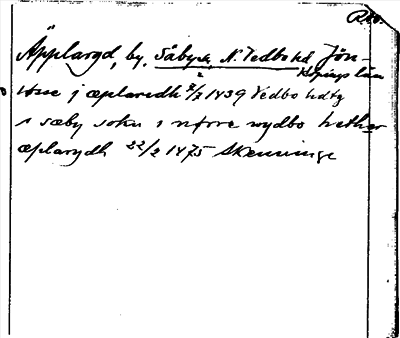 Äpplaryd, by, Säby sn N. Vedbo hd Jön-
köpings län
i æplarydh 2/3 1439 Vedbo hdtg
i sæby sokn i nørre wydbo hether
æplarydh 22/2 1475 Skenninge